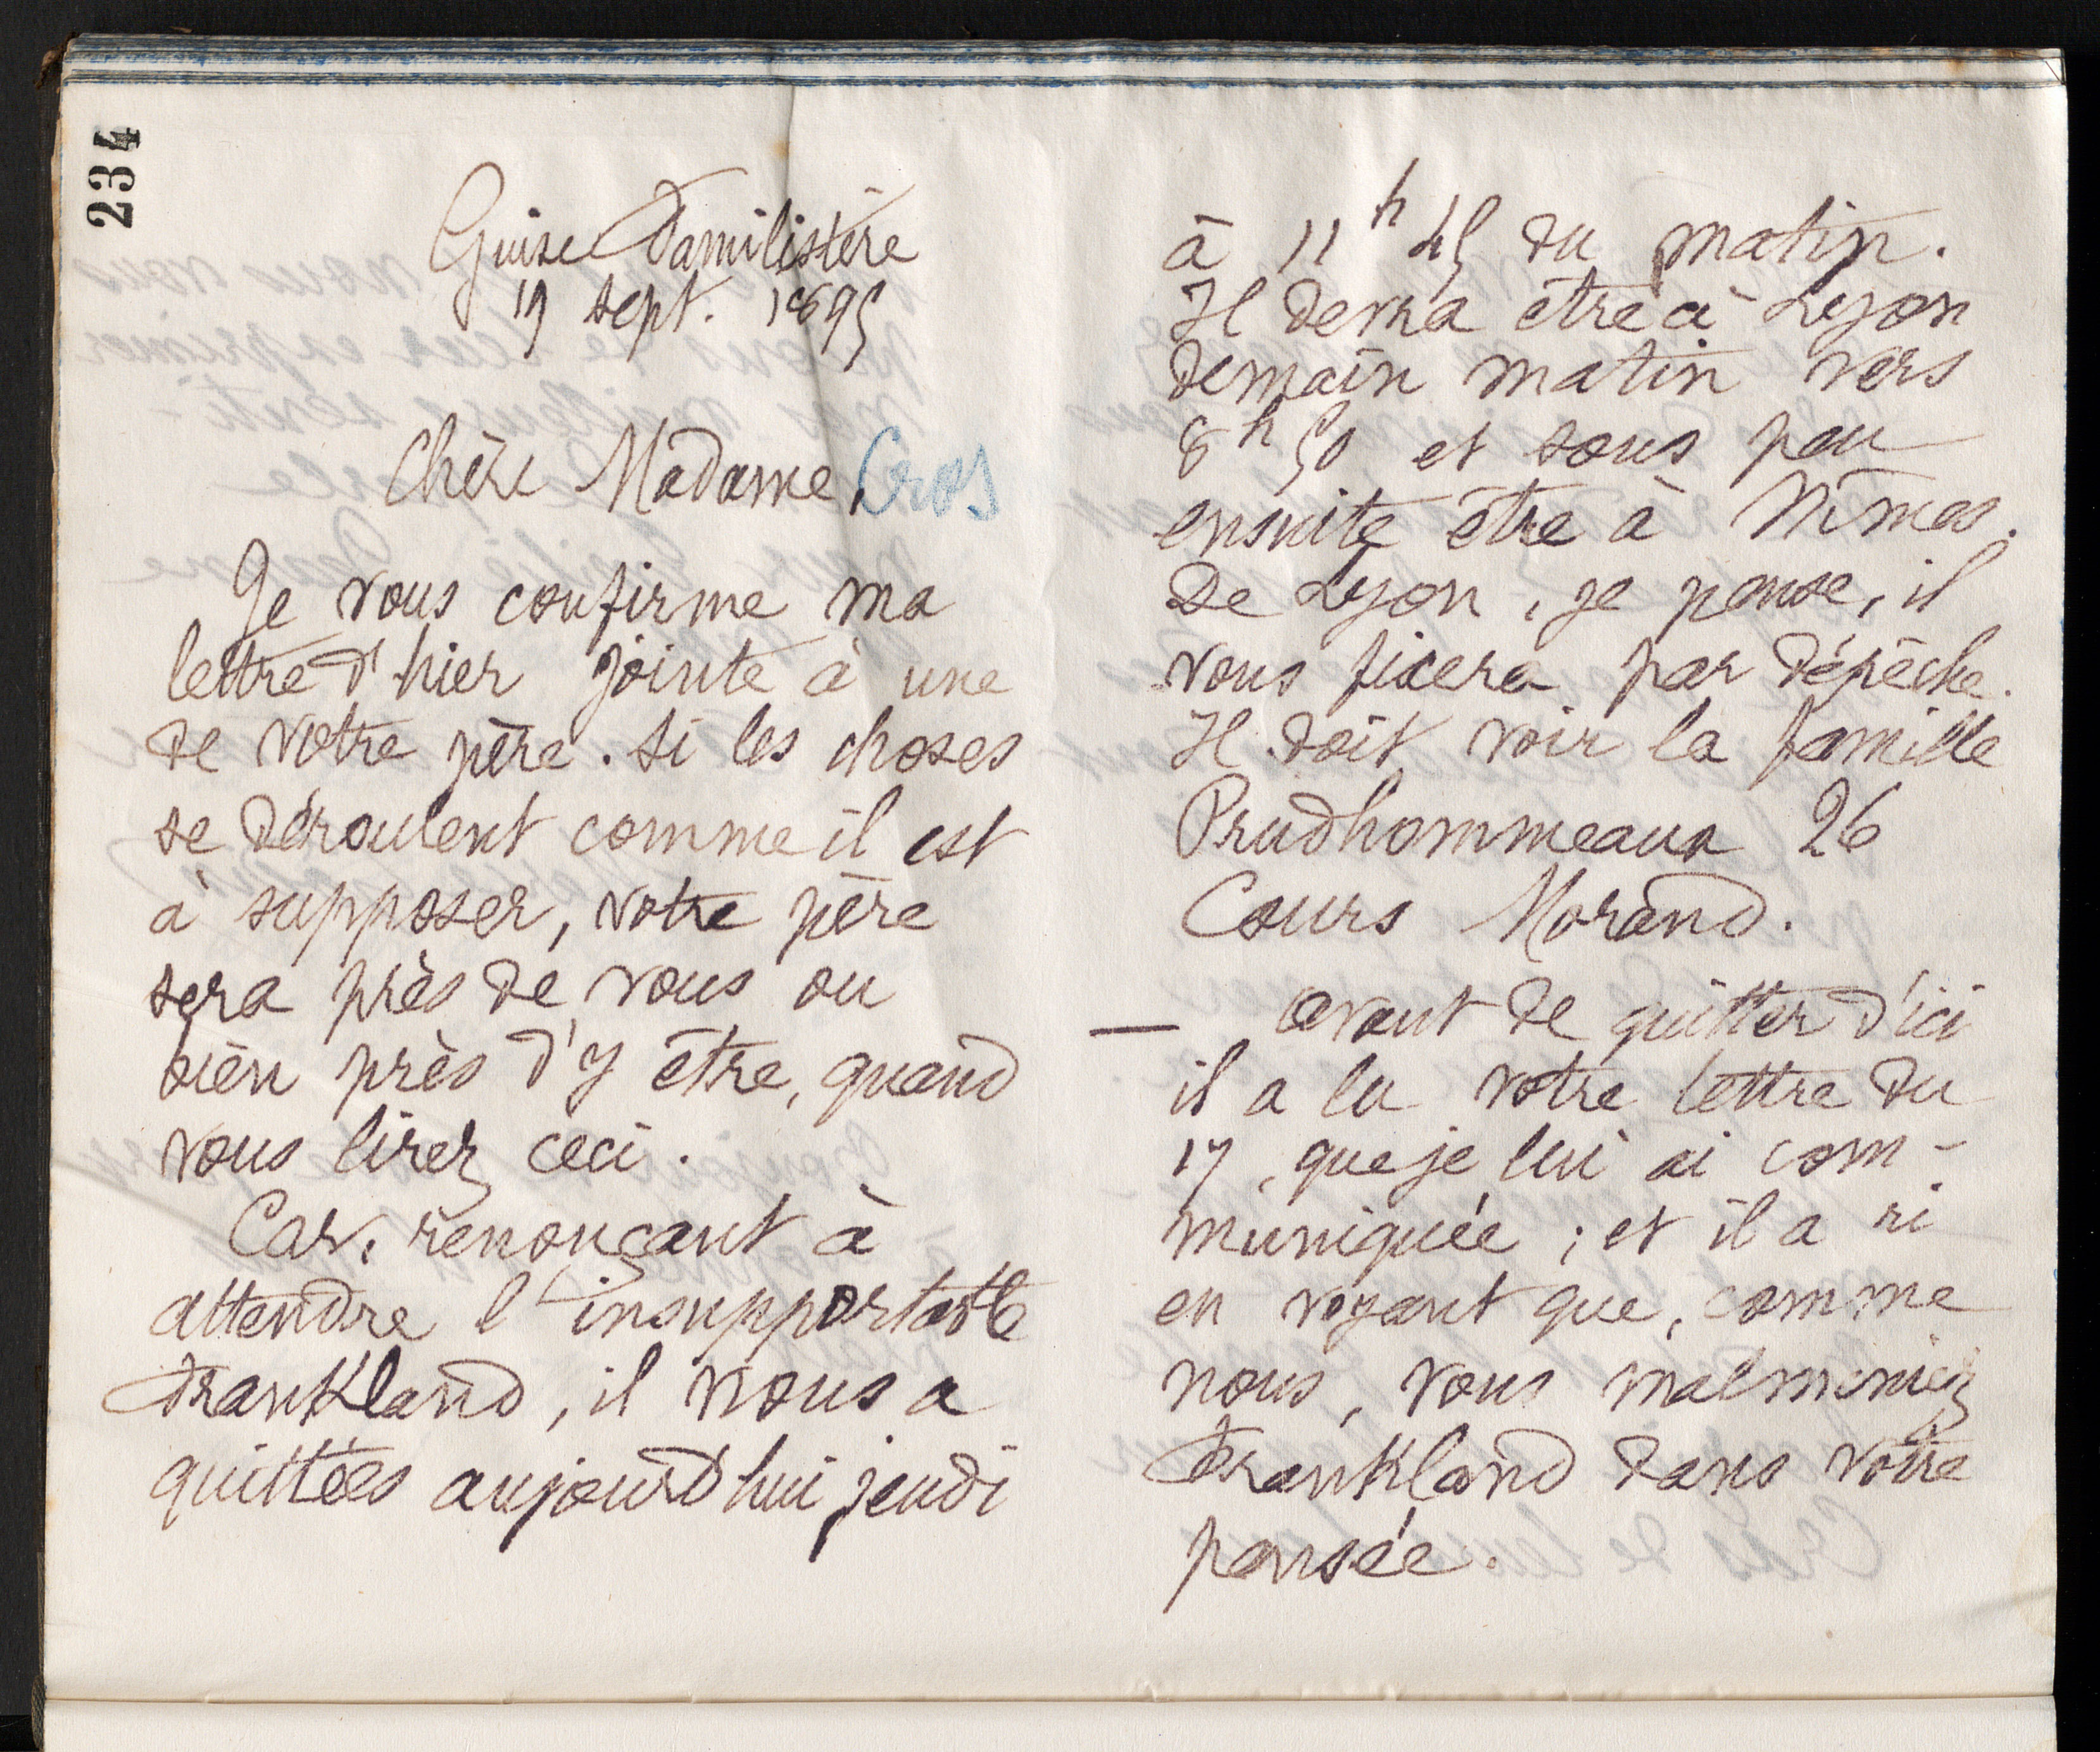 234
Guise Familistère
19 sept. 1895
Chère Madame, Cros
Je vous confirme ma
lettre d'hier jointe à une
de votre père. Si les choses
se déroulent comme il est
à supposer, votre père
sera près de vous ou
bien près d'y être, quand
vous lirez ceci.
Car, renonçant à
attendre l'insupportable
Frankland, il nous a
quittées aujourd'hui jeudi
à 11 h 45 du matin.
Il devra être à Lyon
demain matin vers
8 h 50 et sous peu
ensuite être à Nîmes.
De Lyon, je pense, il
vous fixera par dépêche.
Il doit voir la famille
Prudhommeaux 26
Cours Morand.
— Avant de quitter d'ici
il a lu votre lettre du
17, que je lui ai com-
muniquée ; et il a ri
en voyant que, comme
nous, vous malmeniez
Frankland dans votre
pensée.